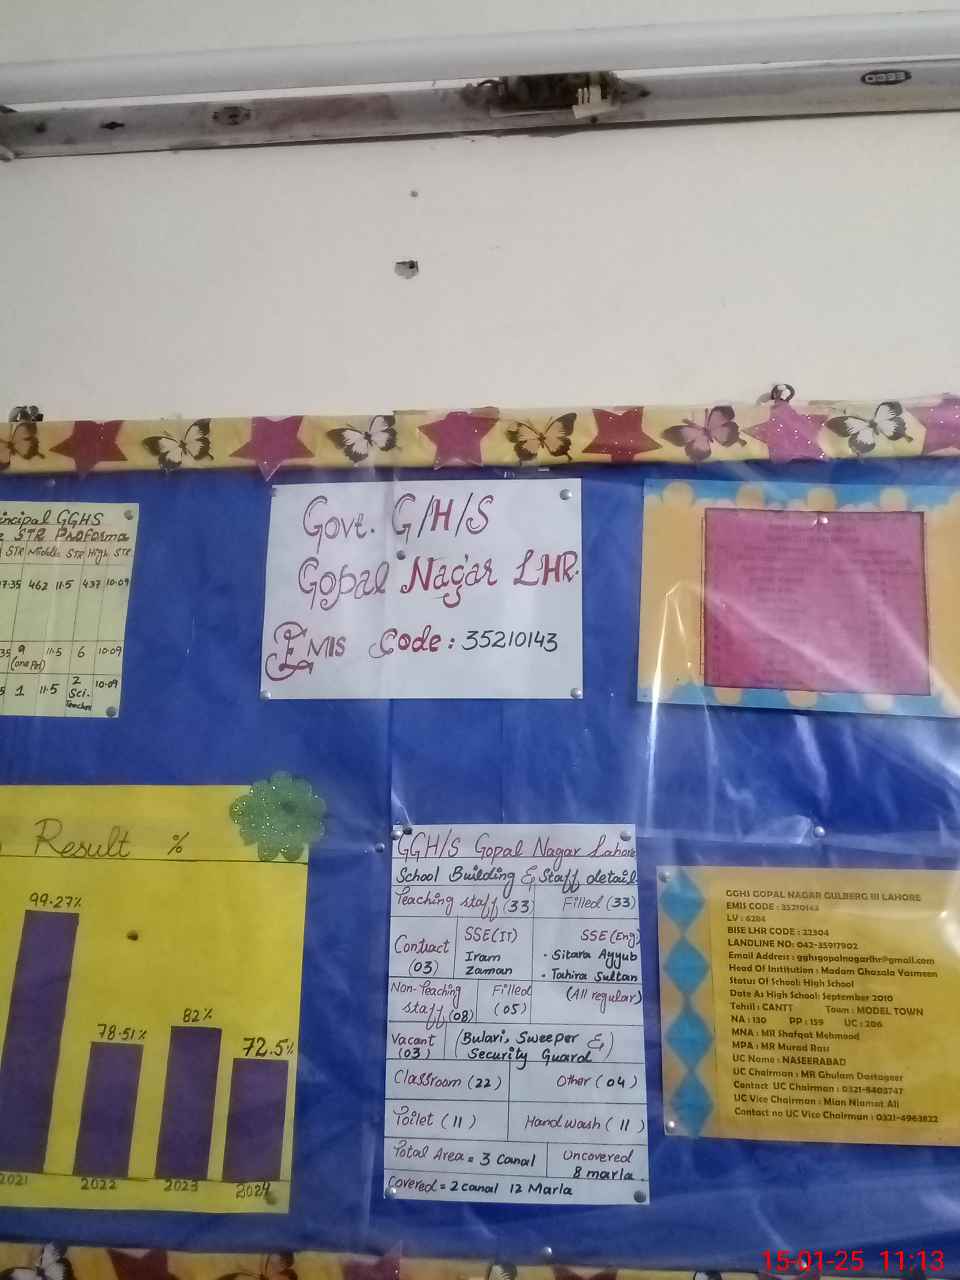 incipal GGHS
STR Proforma
STR Middle STR High STR
17.35 462 11.5 437 10.09
35 9 11.5 6 10.09
(one Art)
5 1 11.5 2 10.09
Sci.
Teacher
Govt. G/H/S
Gopal Nagar LHR.
EMIS Code : 35210143
Result %
99.27%
78.51%
82%
72.5%
2021 2022 2023 2024
GGH/S Gopal Nagar Lahore
School Building & Staff detail
Teaching staff (33) Filled (33)
Contract (03)
SSE(IT)
Iram
Zaman
SSE(Eng)
• Sitara Ayyub
• Tahira Sultan
(All regular)
Non-Teaching staff (08)
Filled (05)
Vacant (03)
(Bulavi, Sweeper &
Security Guard)
Classroom (22) Other (04)
Toilet (11) Hand wash (11)
Total Area = 3 canal Uncovered 8 marla.
Covered = 2 canal 12 Marla
GGHS GOPAL NAGAR GULBERG III LAHORE
EMIS CODE : 35210143
LV : 6284
BISE LHR CODE : 22304
LANDLINE NO: 042-35917902
Email Address : gghsgopalnagarlhr@gmail.com
Head Of Institution : Madam Ghazala Yasmeen
Status Of School: High School
Date As High School: September 2010
Tehsil : CANTT Town : MODEL TOWN
NA : 130 PP : 159 UC : 206
MNA : MR Shafqat Mehmood
MPA : MR Murad Rass
UC Name : NASEERABAD
UC Chairman : MR Ghulam Dastageer
Contact UC Chairman : 0321-8403747
UC Vice Chairman : Mian Niamat Ali
Contact no UC Vice Chairman : 0321-4963822
15-01-25 11:13